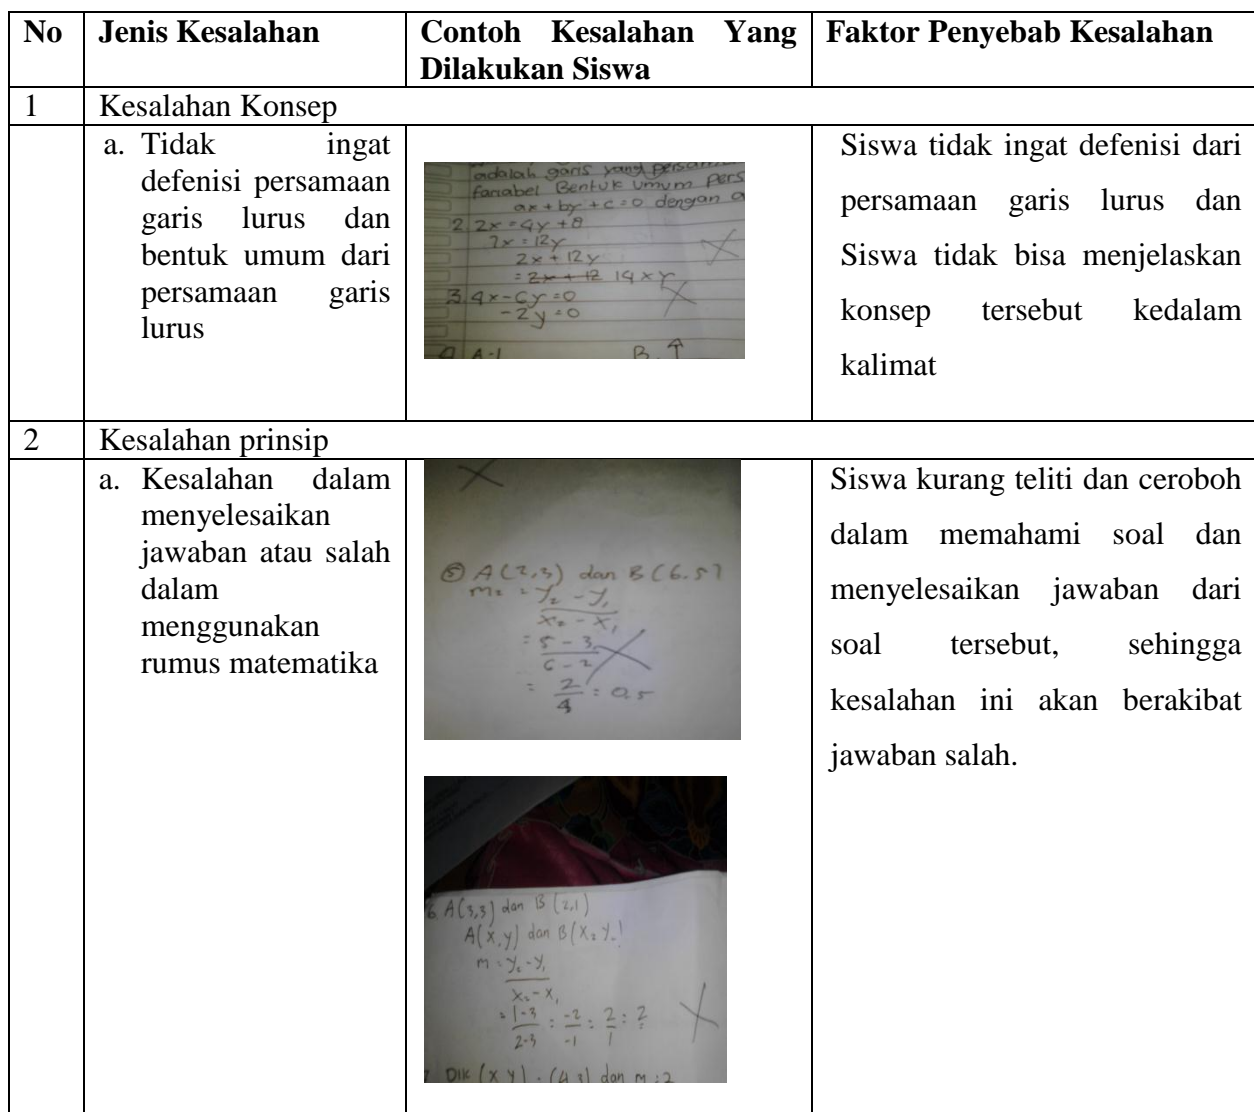 No Jenis Kesalahan Contoh Kesalahan Yang Dilakukan Siswa Faktor Penyebab Kesalahan
1 Kesalahan Konsep
a. Tidak ingat
defenisi persamaan
garis lurus dan
bentuk umum dari
persamaan garis
lurus
adalah garis yang
fariabel Bentuk umum Pers
ax + by + c = 0 dengan a
2. 2x = 4y + 8
2x + 12y
= 2x + 12 14xy
3. 4x - 6y = 0
- 2y = 0
Siswa tidak ingat defenisi dari
persamaan garis lurus dan
Siswa tidak bisa menjelaskan
konsep tersebut kedalam
kalimat
2 Kesalahan prinsip
a. Kesalahan dalam
menyelesaikan
jawaban atau salah
dalam
menggunakan
rumus matematika
⑤ A(2,3) dan B(6.5)
= y₂ - y₁
x₂ - x₁
= 5 - 3
6 - 2
= 2/4 = 0,5
6. A(3,3) dan B(2,1)
A(x,y) dan B(x₂ y₂)
m = y₂ - y₁
x₂ - x₁
= 1-3 = -2 = 2 = 2
2-3 -1 1
Dik (x y) = (4 3) dan m = 2
Siswa kurang teliti dan ceroboh
dalam memahami soal dan
menyelesaikan jawaban dari
soal tersebut, sehingga
kesalahan ini akan berakibat
jawaban salah.